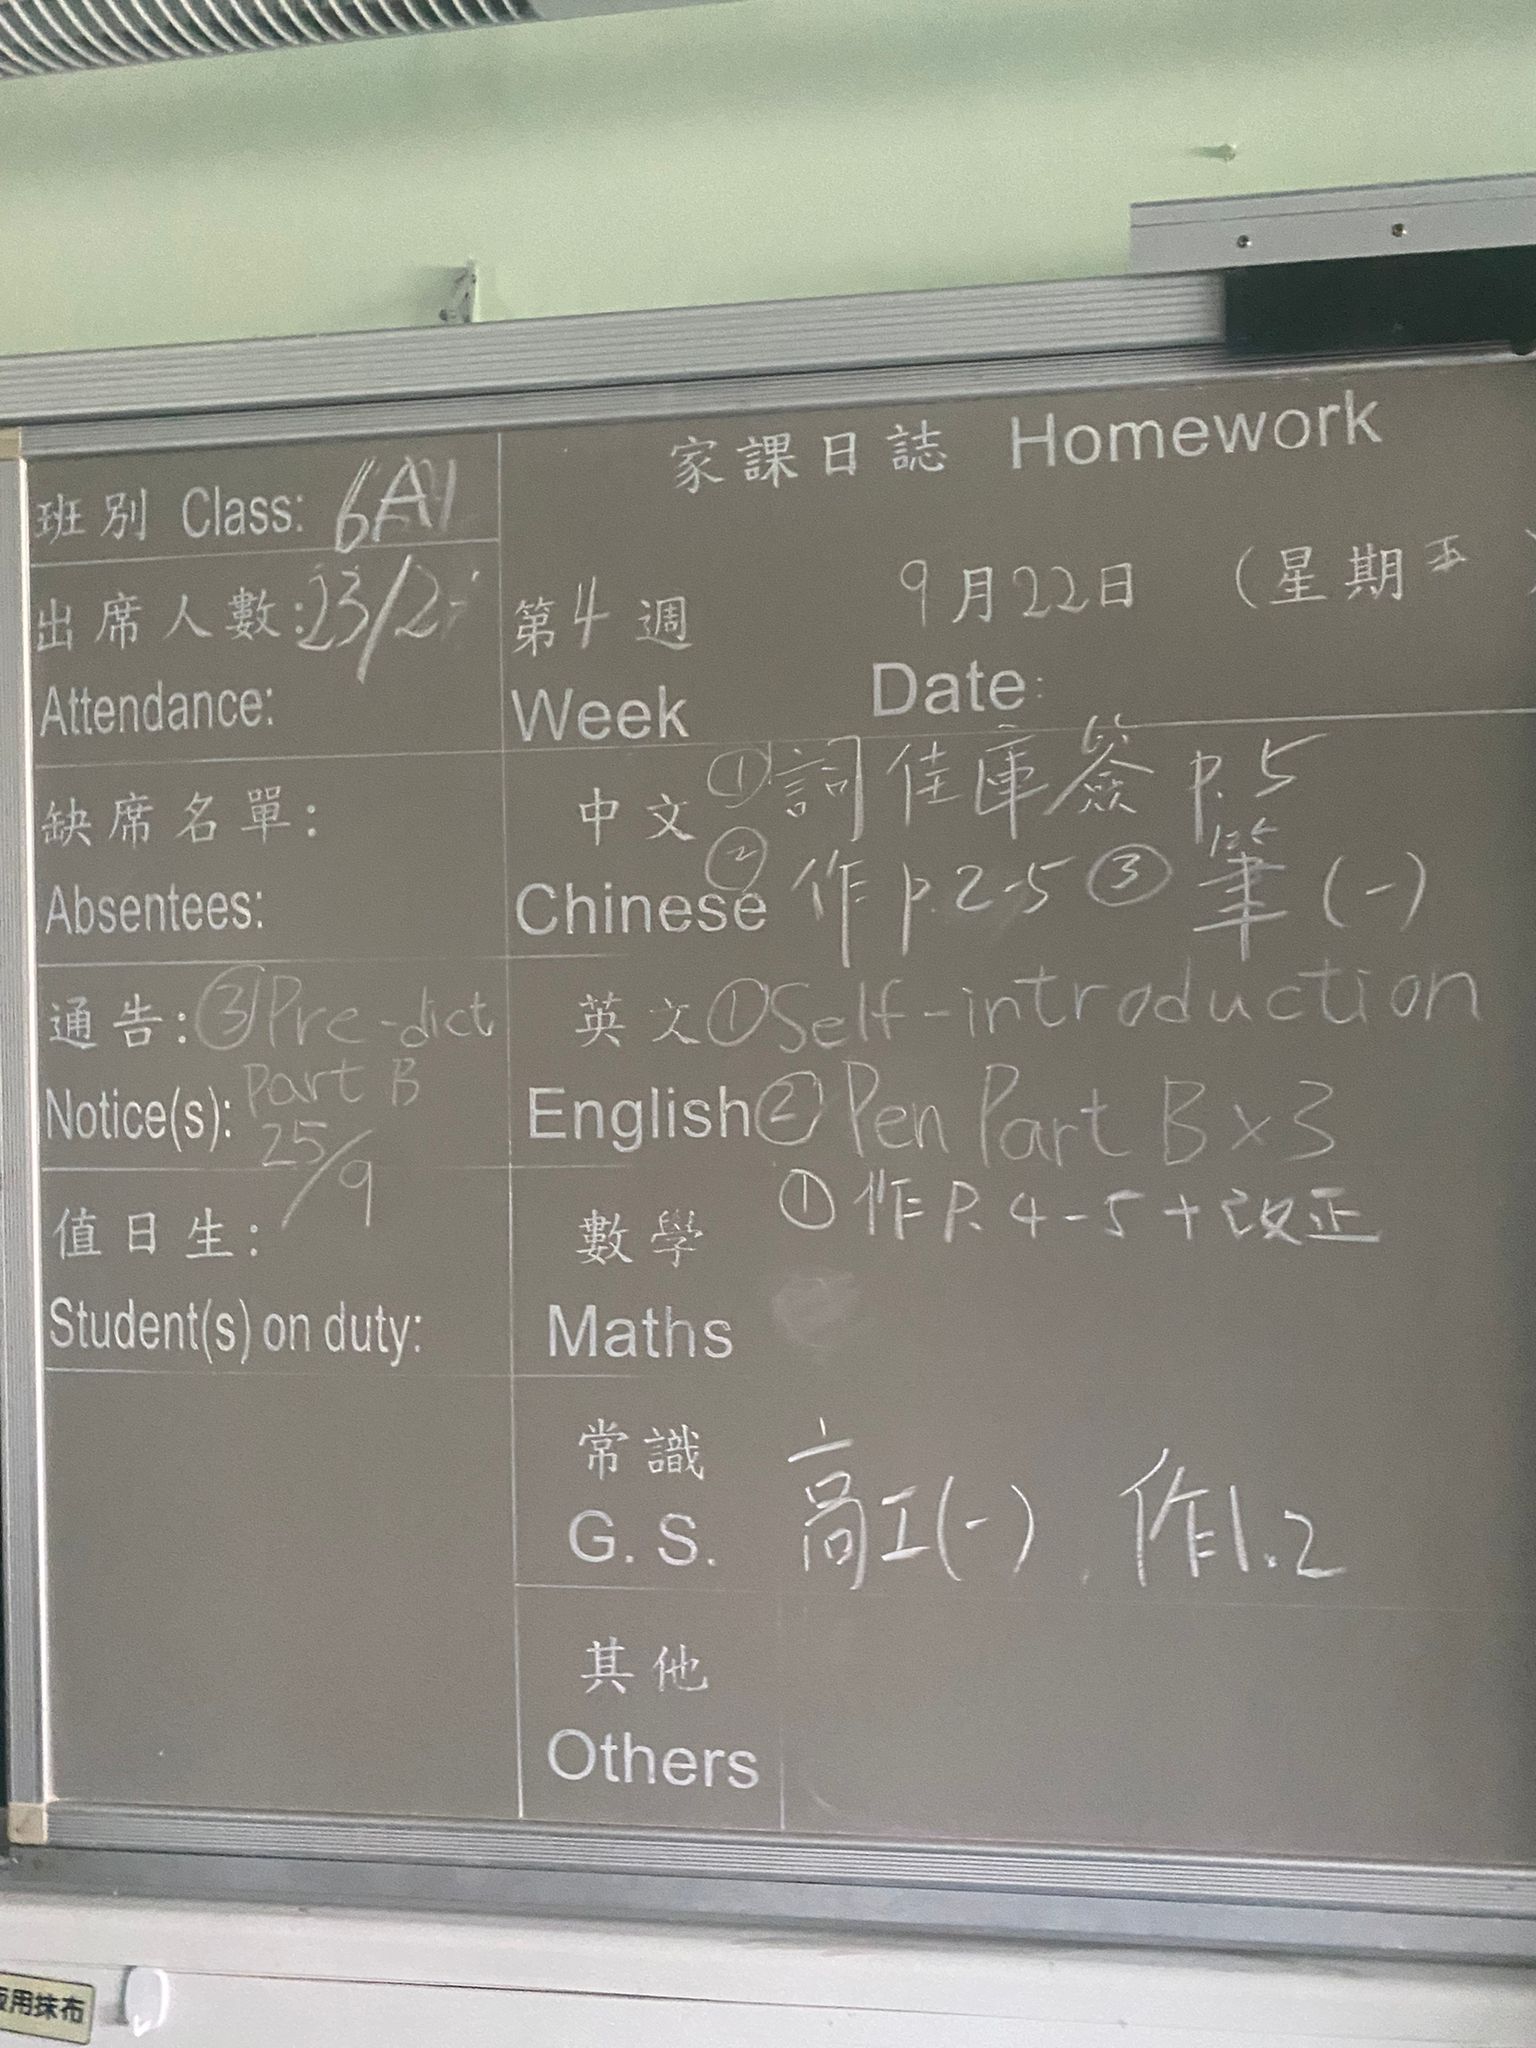 家課日誌 Homework
班別 Class: 6A1
出席人數: 23/2
Attendance:
第4週 9月22日 (星期五)
Week Date:
缺席名單:
Absentees:
中文 ① 詞佳庫簽 p.5
Chinese ② 作 p.2-5 ③ 筆 (一)
通告: ③ Pre-dict
Notice(s): Part B
25/9
英文 ① Self-introduction
English ② Pen Part B x 3
值日生:
Student(s) on duty:
數學 ① 作 P. 4-5 + 改正
Maths
常識
G. S. 高工(一) 作1.2
其他
Others
用抹布